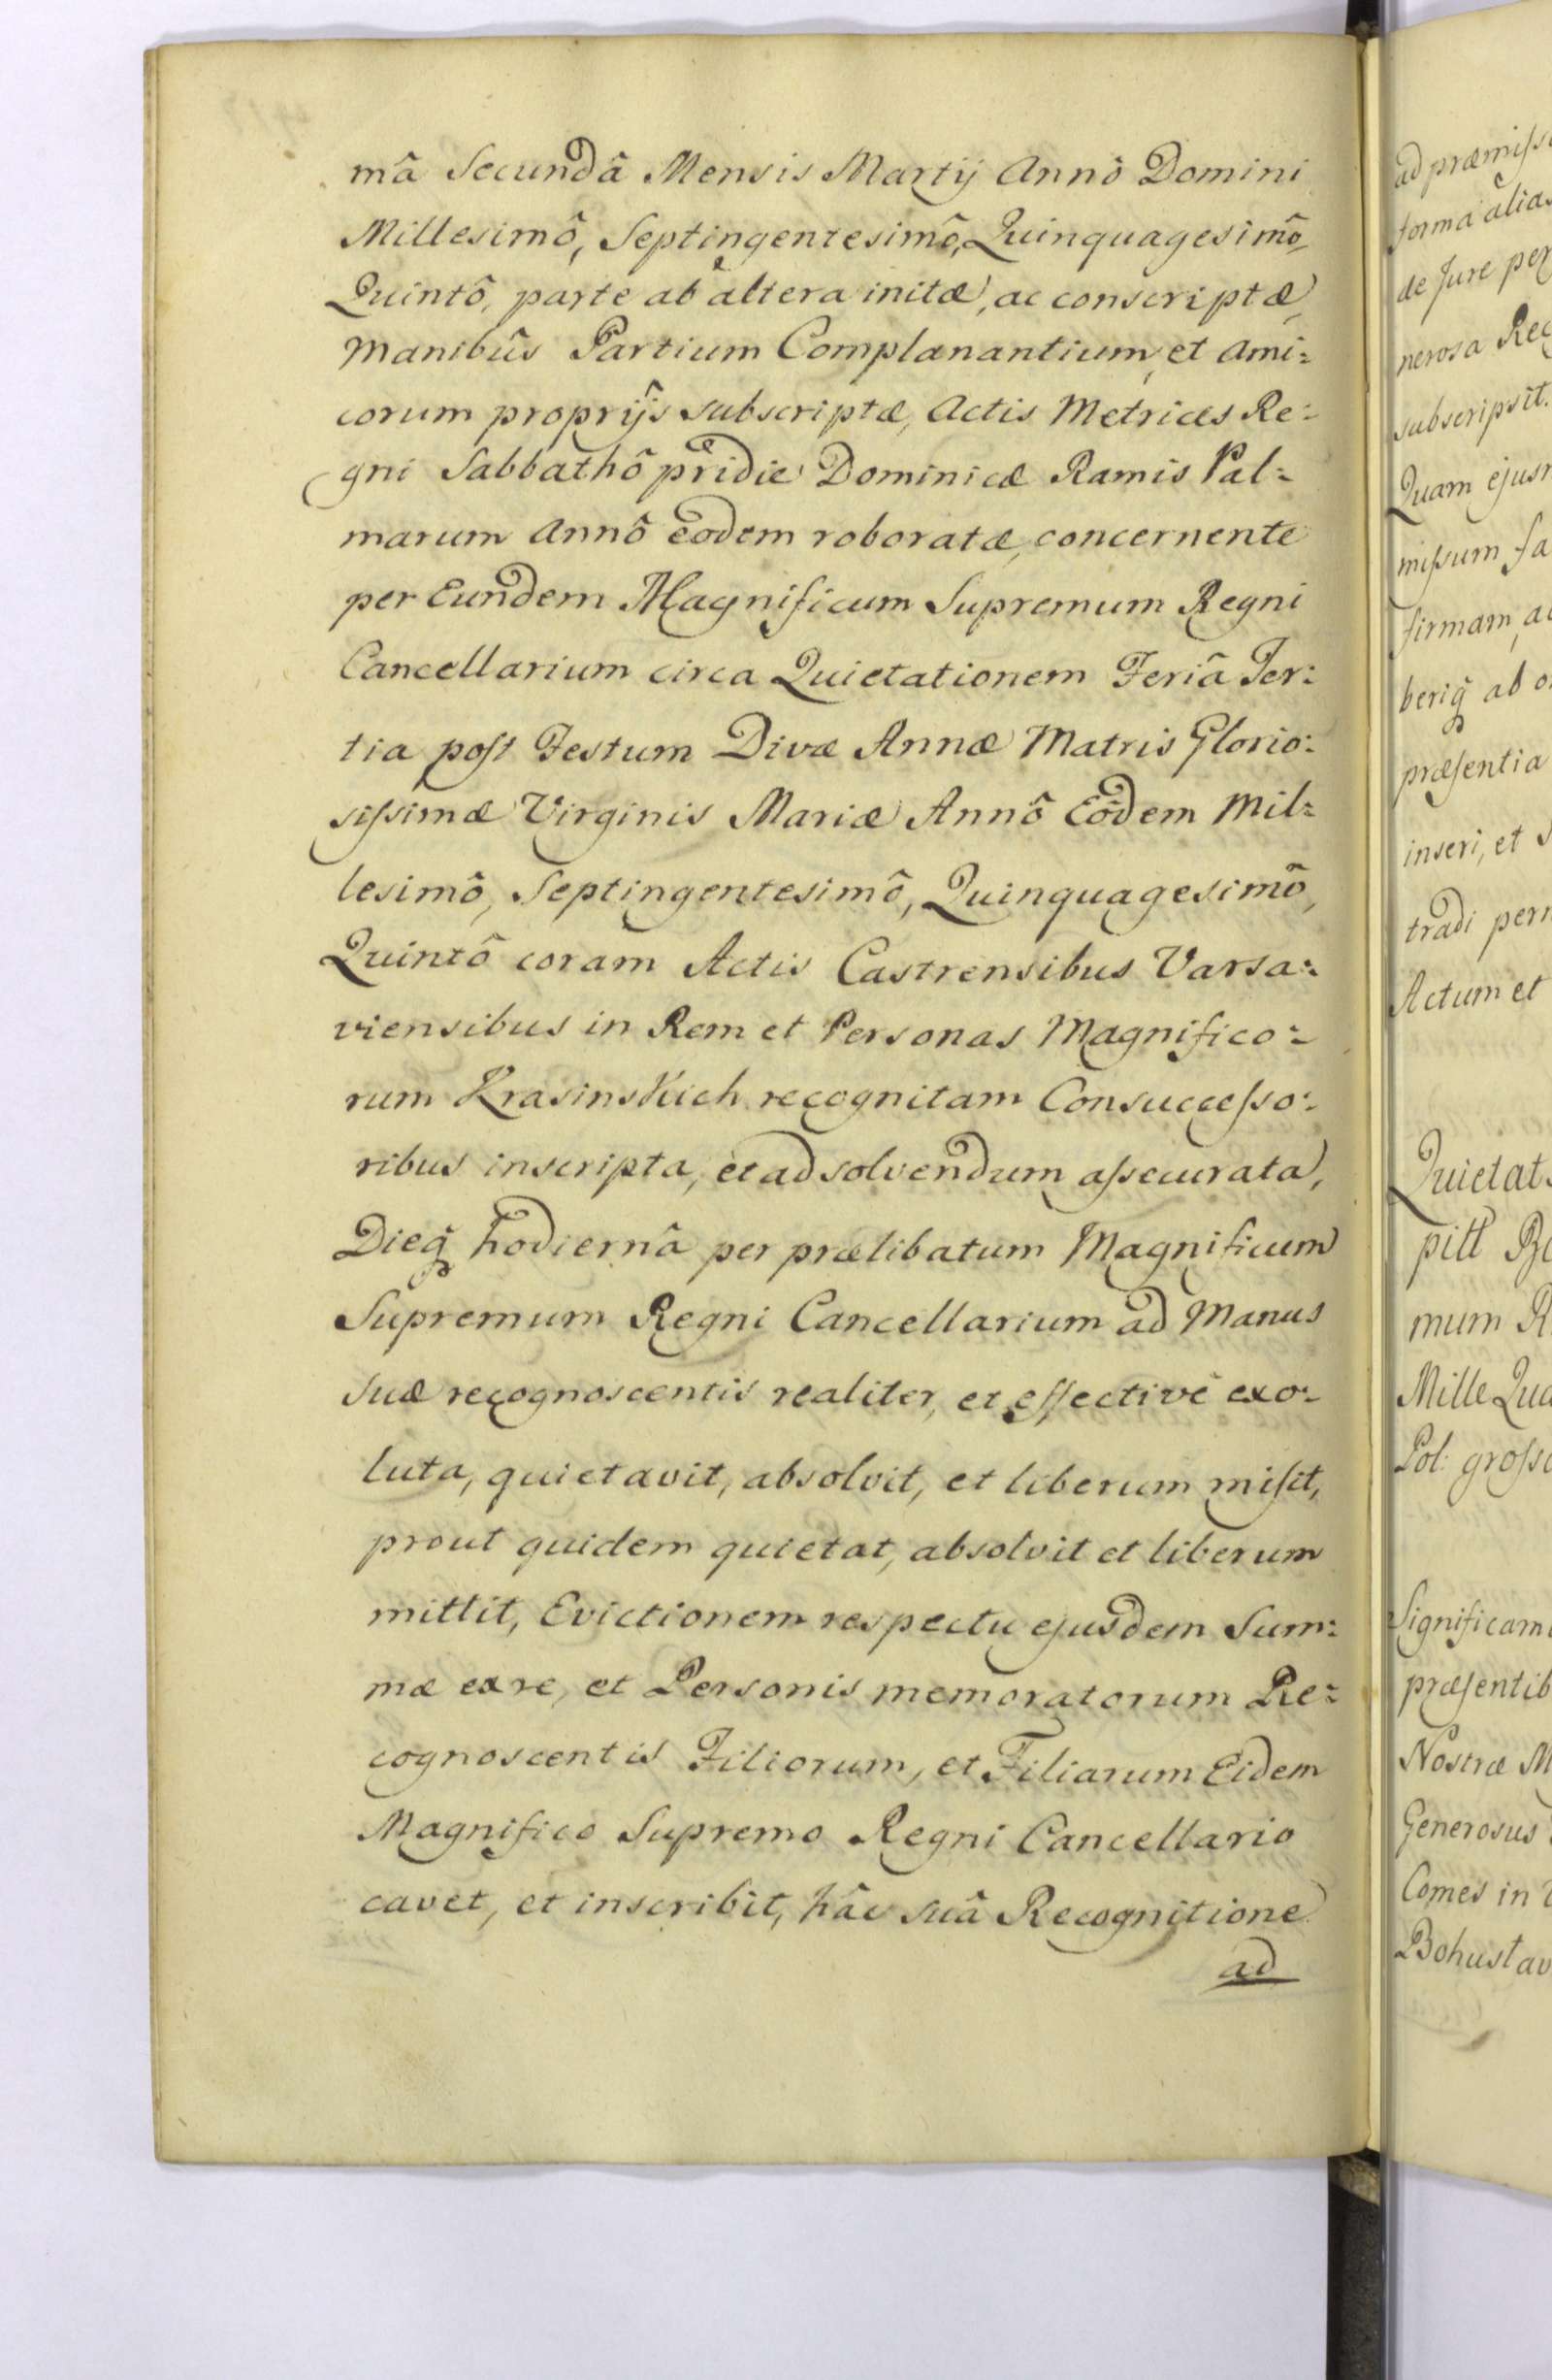 mâ Secundâ Mensis Martij Annô Domini
Millesimô, Septingentesimô, Quinquagesimô
Quintô, parte ab altera initæ, ac conscriptæ,
Manibûs Partium Complanantium, et Ami=
corum proprijs subscriptæ, Actis Metrices Re=
gni Sabbathô pridie Dominicæ Ramis Pal=
marum Annô eodem roboratæ, concernente
per Eundem Magnificum Supremum Regni
Cancellarium circa Quietationem Feriâ Ter=
tia post Festum Divæ Annæ Matris Glorio=
sissimæ Virginis Mariæ Annô Eôdem Mil=
lesimô, Septingentesimô, Quinquagesimô,
Quintô coram Actis Castrensibus Varsa=
viensibus in Rem et Personas Magnifico=
rum Krasinskich recognitam Consuccesso=
ribus inscripta, et ad solvendum assecurata,
Dieq hodiernâ per prælibatum Magnificum
Supremum Regni Cancellarium ad Manus
suæ recognoscentis realiter, et effectivè exo=
luta, quietavit, absolvit, et liberum misit,
prout quidem quietat, absolvit et liberum
mittit, Evictionem respectu ejusdem Sum=
mæ ex re, et Personis memoratorum Re=
cognoscentis Filiorum, et Filiarum Eidem
Magnifico Supremo Regni Cancellario
cavet, et inscribit, hâc suâ Recognitione
ad
ad præmiss
forma alias
de Jure per
nerosa Rec
subscripsit.
Quam ejus
missum fa
firmam, ac
beriq ab o
præsentia
inseri, et S
tradi per
Actum et
Quietat
pitt
mum R
Mille Qua
Pol: grosso
Significam
præsentib
Nostræ M
Generosus
Comes in
Bohustav